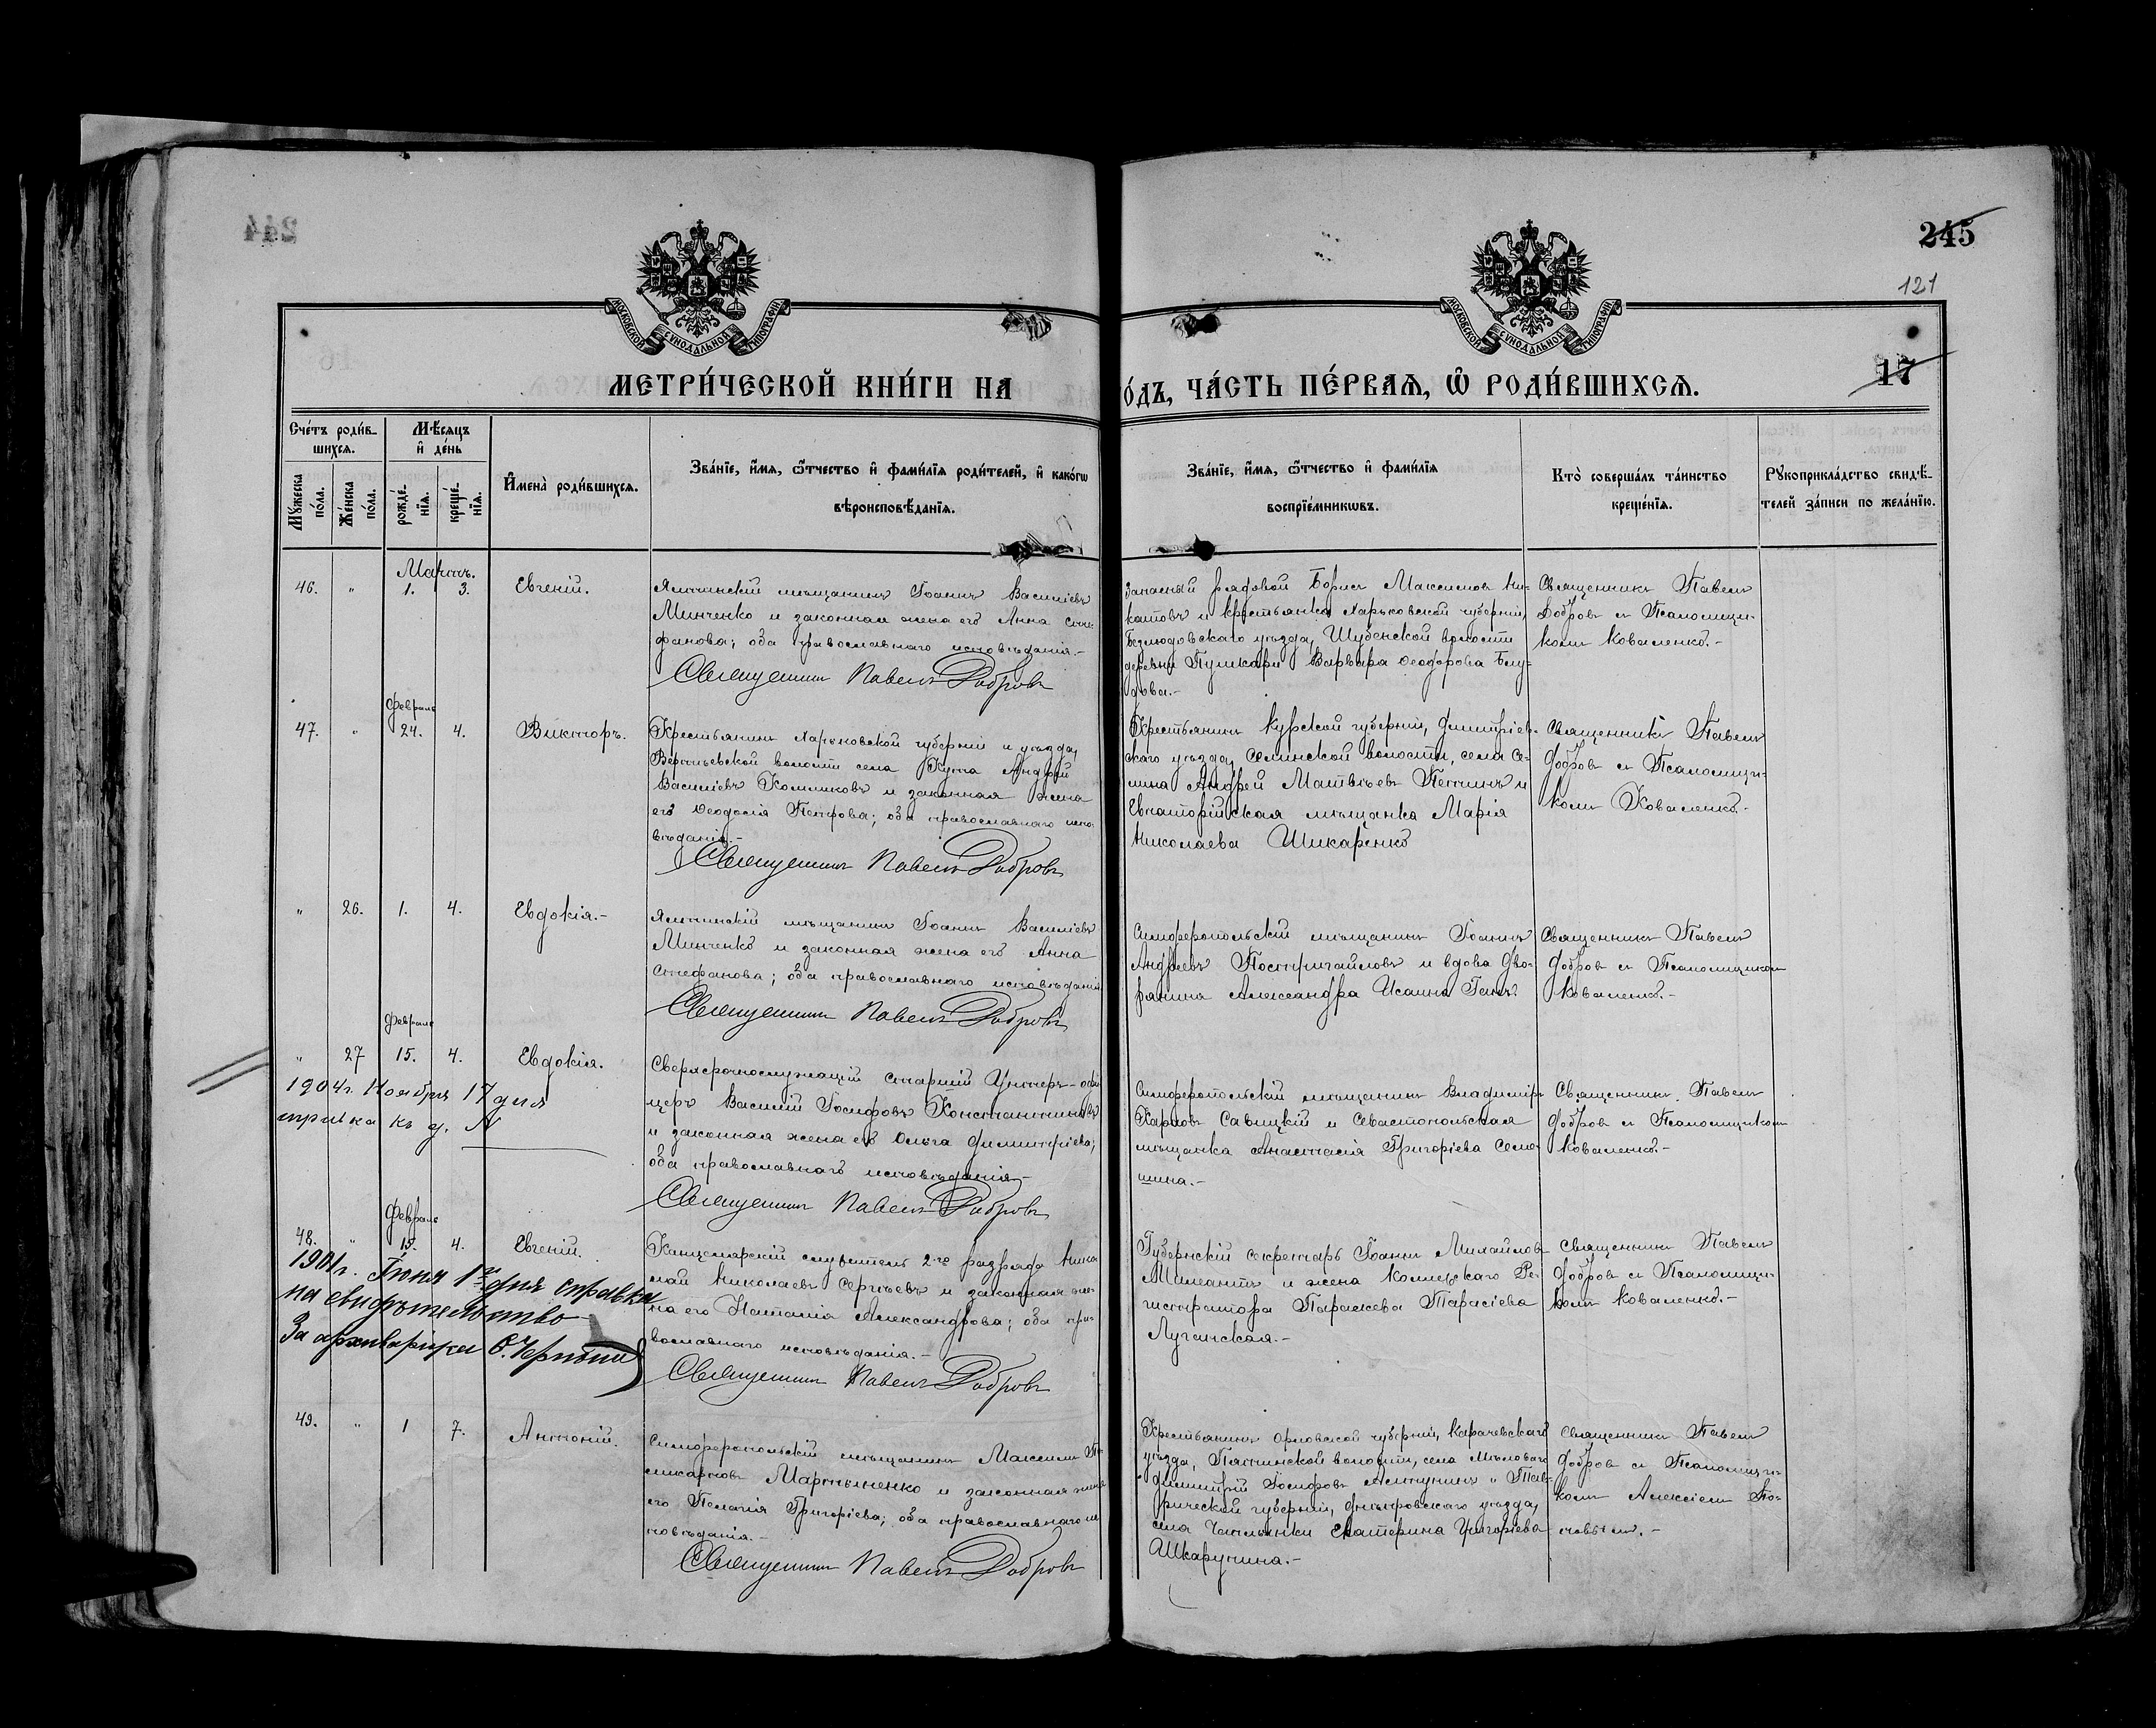 244
245
121
17
МОСКОВСКОЙ СУНОДАЛЬНОЙ ТИПОГРАФІИ
МОСКОВСКОЙ СУНОДАЛЬНОЙ ТИПОГРАФІИ
МЕТРИ́ЧЕСКОЙ КНИ́ГИ НА
О́ДЪ, ЧА́СТЬ ПЕ́РВАѦ, Ѡ РОДИ́ВШИХСѦ.
Сче́тъ роди́в-
шихсѧ.
Мѣ́сѧцъ
и҆ де́нь
Мꙋ́жеска
по́ла.
Же́нска
по́ла.
рожде́-
нїѧ.
креще́-
нїѧ.
И҆мена̀ роди́вшихсѧ.
Зва́нїе, и҆́мѧ, ѻ҆́тчество и҆ фами́лїѧ роди́телей, и҆ како́гѡ
вѣроисповѣ́данїѧ.
Зва́нїе, и҆́мѧ, ѻ҆́тчество и҆ фами́лїѧ
воспрїе́мникѡвъ.
Кто̀ соверша́лъ та́инство
креще́нїѧ.
Рꙋкоприкла́дство свидѣ́-
телей за́писи по жела́нїю.
Мартъ.
46. " 1. 3. Евгеній.
Ялтинскій мѣщанинъ Іоаннъ Василіевъ
Минченко и законная жена его Анна Сте-
фанова; оба православнаго исповѣданія.-
Священникъ Павелъ Добровъ
Запасный рядовой Борисъ Максимовъ
и крестьянка Харьковской губерніи,
уѣзда, волости
деревни Пушкари Варвара Ѳеодорова
дова.-
Священникъ Павелъ
Добровъ съ Псаломщи-
комъ Коваленко.-
Февраль
47. " 24. 4. Викторъ.
Крестьянинъ Харьковской губерніи и уѣзда,
волости села Андрей
Василіевъ и законная жена
его Ѳеодосія Петрова; оба православнаго испо-
вѣданія.-
Священникъ Павелъ Добровъ
Крестьянинъ Курской губерніи, Димитріев-
скаго уѣзда, Селинской волости, села Се-
лина Андрей Матвѣевъ и
Евпаторійская мѣщанка Марія
Николаева Шикаренко
Священникъ Павелъ
Добровъ съ Псаломщи-
комъ Коваленко.-
" 26. 1. 4. Евдокія.-
Ялтинскій мѣщанинъ Іоаннъ Василіевъ
Минченко и законная жена его Анна
Стефанова; оба православнаго исповѣданія
Священникъ Павелъ Добровъ
Симферопольскій мѣщанинъ Іоаннъ
Андреевъ и вдова дво-
рянина Александра Исаина
Священникъ Павелъ
Добровъ съ Псаломщикомъ
Коваленко.-
Февраль
" 27 15. 4. Евдокія.
1904г. Ноября 17 дня
справка къ д. №
Сверхсрочнослужащій старшій Унтеръ-офи-
церъ Василій Іосифовъ Константиновъ
и законная жена его Ольга Димитріева;
оба православнаго исповѣданія.-
Священникъ Павелъ Добровъ
Симферопольскій мѣщанинъ Владиміръ
Карповъ Савицкій и Севастопольская
мѣщанка Анастасія Григоріева Семо-
шина.-
Священникъ Павелъ
Добровъ съ Псаломщикомъ
Коваленко.-
Февраль
48. " 15. 4. Евгеній.
1901г. Іюня 1го дня справка
на свидѣтельство
За архиваріуса
Канцелярскій служитель 2го разряда Нико-
лай Николаевъ Сергѣевъ и законная же-
на его Наталія Александрова; оба пра-
вославнаго исповѣданія.-
Священникъ Павелъ Добровъ
Губернскій секретарь Іоаннъ Михайловъ
и жена Коллежскаго Ре-
гистратора Параскева Тарасіева
Лучинская.-
Священникъ Павелъ
Добровъ съ Псаломщи-
комъ Коваленко.-
49. " 1 7. Антоній.
Симферопольскій мѣщанинъ Максимъ По-
ликарповъ Мартыненко и законная жена
его Пелагія Григоріева; оба православнаго ис-
повѣданія.-
Священникъ Павелъ Добровъ
Крестьянинъ Орловской губерніи, Карачевскаго
уѣзда, волости, села
Димитрій Іосифовъ и Тав-
рической губерніи, Днѣпровскаго уѣзда,
села Чаплынки Екатерина Григорьева
Шкарупина.-
Священникъ Павелъ
Добровъ съ Псаломщи-
комъ Алексіемъ По-
повымъ.-